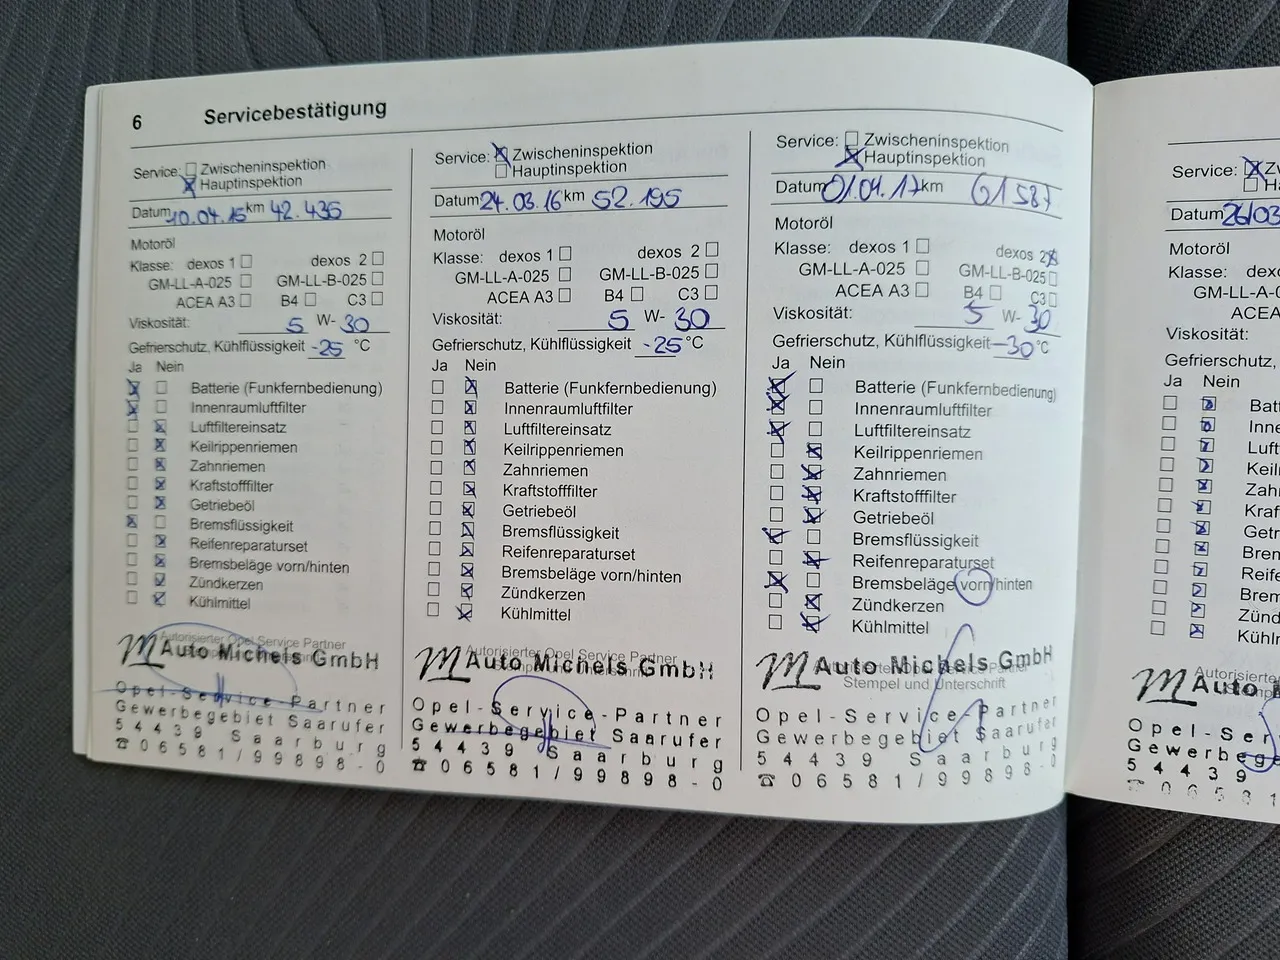 6 Servicebestätigung
Service: Zwischeninspektion
Hauptinspektion
Datum 10.04.15 km 42.435
Motoröl
Klasse: dexos 1 dexos 2
GM-LL-A-025 GM-LL-B-025
ACEA A3 B4 C3
Viskosität: 5 W- 30
Gefrierschutz, Kühlflüssigkeit -25 °C
Ja Nein
Batterie (Funkfernbedienung)
Innenraumluftfilter
Luftfiltereinsatz
Keilrippenriemen
Zahnriemen
Kraftstofffilter
Getriebeöl
Bremsflüssigkeit
Reifenreparaturset
Bremsbeläge vorn/hinten
Zündkerzen
Kühlmittel
Autorisierter Opel Service Partner
Auto Michels GmbH
Opel-Service-Partner
Gewerbegebiet Saarufer
54439 Saarburg
☎ 06581/99898-0
Service: Zwischeninspektion
Hauptinspektion
Datum 24.03.16 km 52.195
Motoröl
Klasse: dexos 1 dexos 2
GM-LL-A-025 GM-LL-B-025
ACEA A3 B4 C3
Viskosität: 5 W- 30
Gefrierschutz, Kühlflüssigkeit -25 °C
Ja Nein
Batterie (Funkfernbedienung)
Innenraumluftfilter
Luftfiltereinsatz
Keilrippenriemen
Zahnriemen
Kraftstofffilter
Getriebeöl
Bremsflüssigkeit
Reifenreparaturset
Bremsbeläge vorn/hinten
Zündkerzen
Kühlmittel
Autorisierter Opel Service Partner
Auto Michels GmbH
Opel-Service-Partner
Gewerbegebiet Saarufer
54439 Saarburg
☎ 06581/99898-0
Service: Zwischeninspektion
Hauptinspektion
Datum 01.04.17 km 61587
Motoröl
Klasse: dexos 1 dexos 2
GM-LL-A-025 GM-LL-B-025
ACEA A3 B4 C3
Viskosität: 5 W- 30
Gefrierschutz, Kühlflüssigkeit -30 °C
Ja Nein
Batterie (Funkfernbedienung)
Innenraumluftfilter
Luftfiltereinsatz
Keilrippenriemen
Zahnriemen
Kraftstofffilter
Getriebeöl
Bremsflüssigkeit
Reifenreparaturset
Bremsbeläge vorn/hinten
Zündkerzen
Kühlmittel
Auto Michels GmbH
Stempel und Unterschrift
Opel-Service-Partner
Gewerbegebiet Saarufer
54439 Saarburg
☎ 06581/99898-0
Service: Z
Datum 26/03
Motoröl
Klasse: dexo
GM-LL-A
ACEA
Viskosität:
Gefrierschutz,
Ja Nein
Batt
Inne
Luft
Keil
Zah
Kraf
Getr
Brem
Reife
Brem
Zünd
Kühl
Autorisierter
Auto
Opel-Ser
Gewerbe
54439